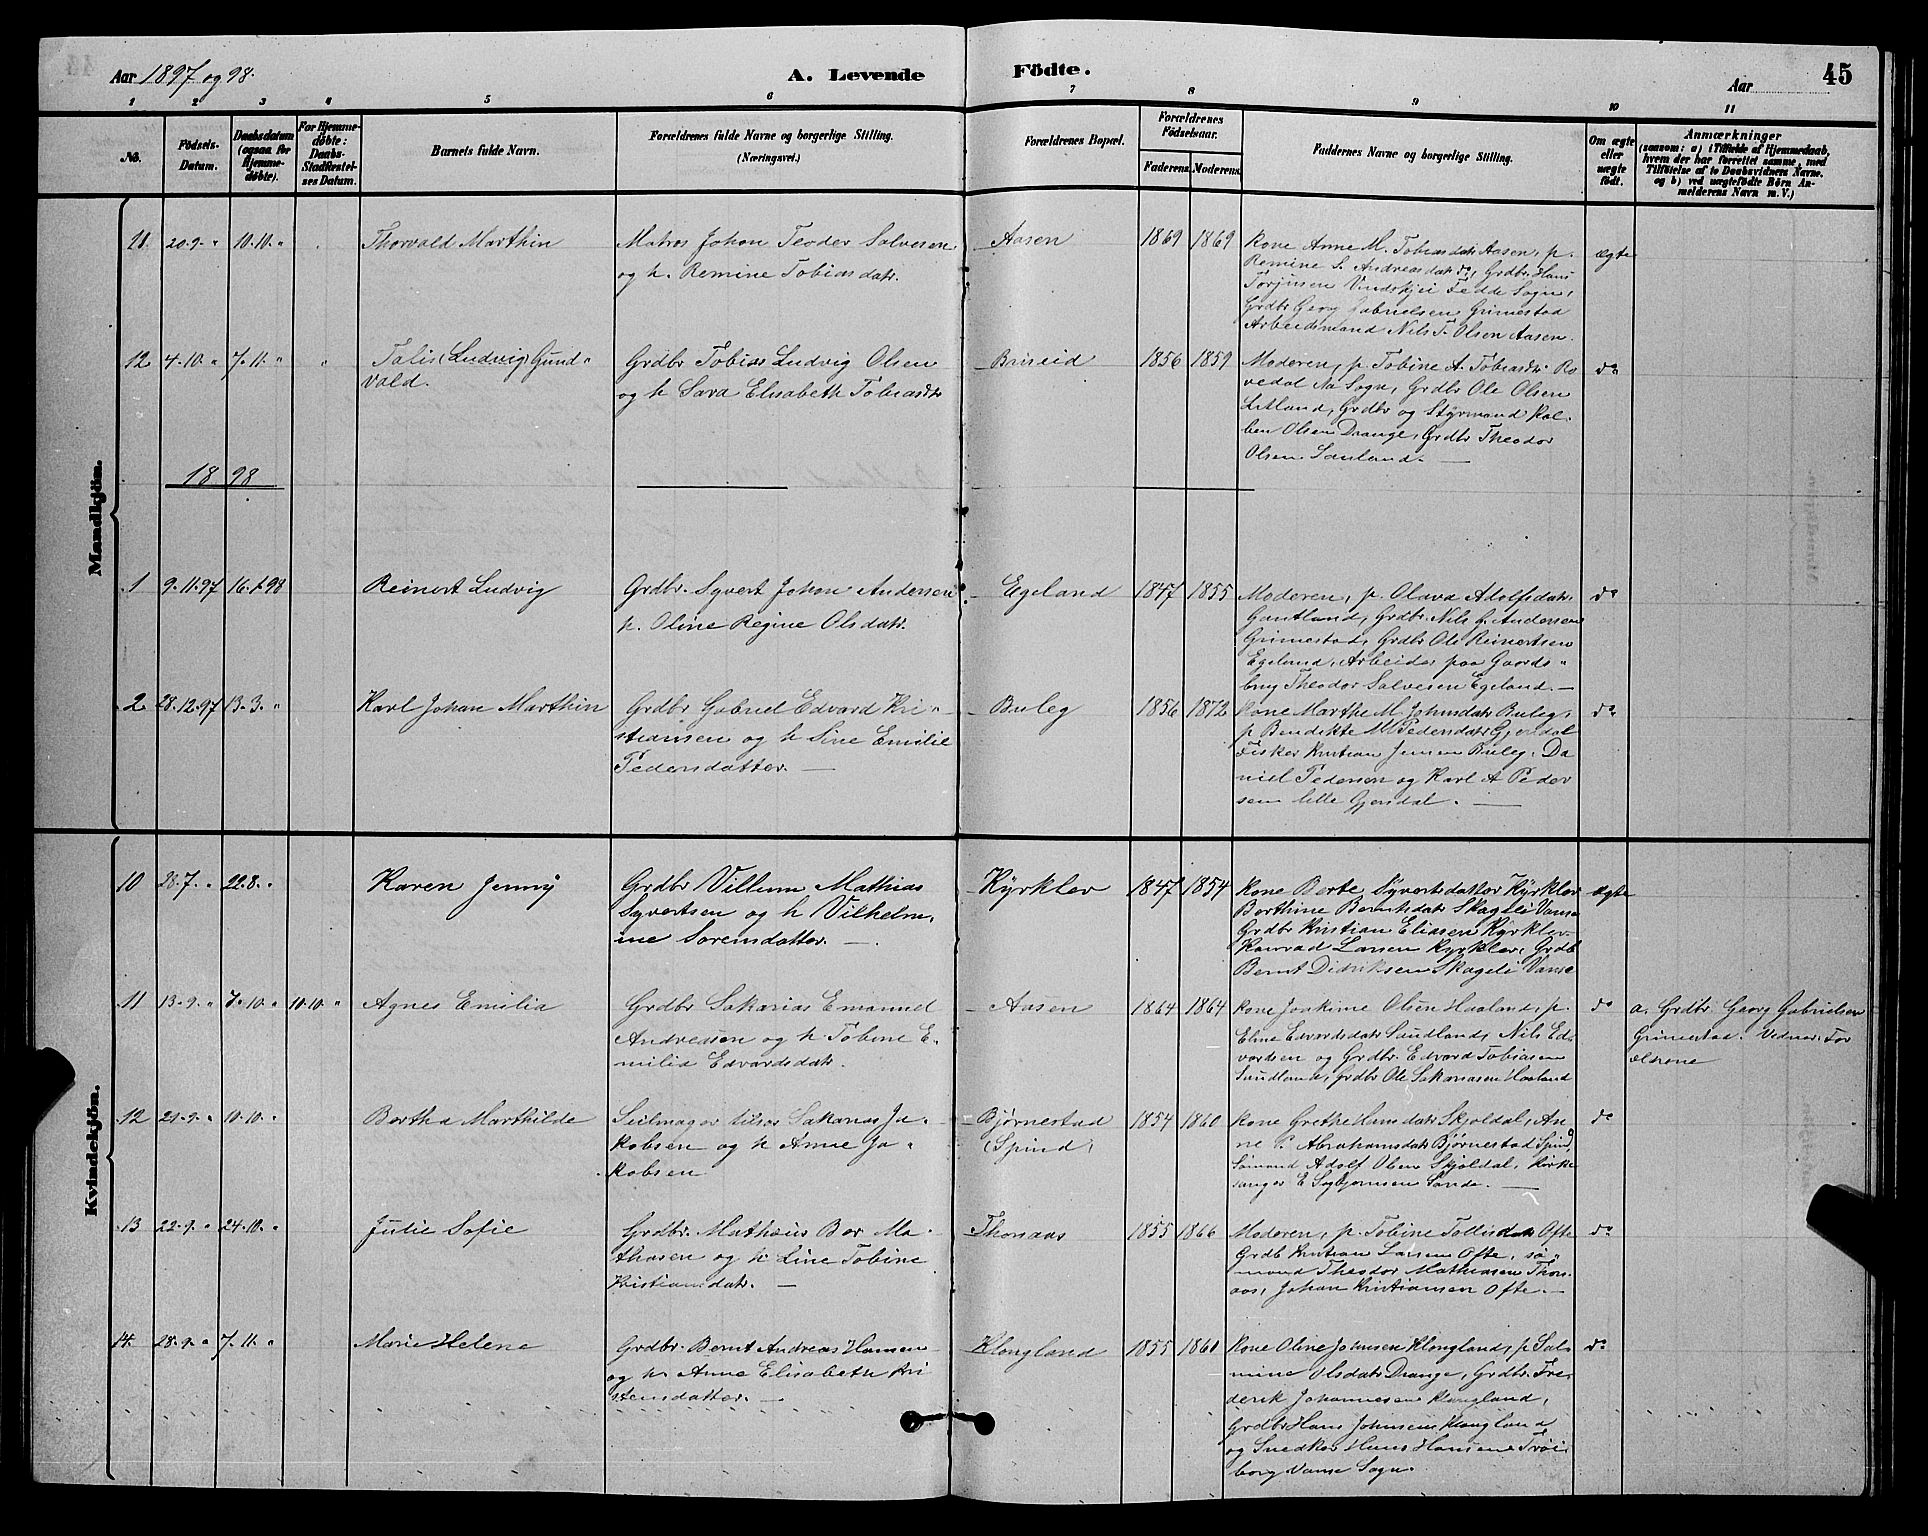 Aar 1897 og 98.
A. Levende
Födte.
Aar
45
1 2 3 4 5 6 7 8 9 10 11
No.
Födsels-
Datum.
Daabsdatum
(ogsaa for
Hjemme-
döbte).
For Hjemme-
döbte:
Daabs-
Stadfæstel-
ses Datum.
Barnets fulde Navn.
Forældrenes fulde Navne og borgerlige Stilling.
(Næringsvei.)
Forældrenes Bopæl.
Forældrenes
Födselsaar.
Faderens. Moderens.
Faddernes Navne og borgerlige Stilling.
Om ægte
eller
uægte
födt.
Anmærkninger
(saasom: a) i Tilfælde af Hjemmedaab,
hvem der har forrettet samme, med
Tilföielse af to Daabsvidners Navne.
og b) ved uægtefödte Börn An-
melderens Navn m. V.)
Mandkjön.
11. 20-9- " 10.10. "
Thorvald Marthin
Matros Johan Teodor Salvesen
og h. Remine Tobiasdatr.
Aasen
1869 1869
Kone Anne M. Tobiasdatr Aasen, p.
Remine S. Andreasdatr do, Grdbr. Hans
Torjusen Vindskjei Fedde Sogn,
Grdbr Georg Gabrielsen Grimestad
Arbeidsmand Nils T. Olsen Aasen.
ægte
12. 4-10- " 7-11- " "
Talis (Ludvig) Gund-
vald.
Grdbr Tobias Ludvig Olsen
og h Sara Elisabeth Tobiasdtr
Briseid
1856 1859
Moderen, p. Tobine A. Tobiasdtr Ro
vedal Na Sogn, Grdbr Ole Olsen
Litland, Grdbr og Styrmand Kol-
ben Olsen Drange, Grdbr Theodor
Olsen Sanland.
do
1898
1 9-11-97 16-1-98
Reinert Ludvig
Grdbr. Syvert Johan Andersen
h. Oline Regine Olsdatr.
Egeland
1847 1855
Moderen, p. Olava Adolfsdatr
Gautland, Grdbr. Nils G. Andersen
Grimestad, Grdbr Ole Reinertsen
Egeland, Arbeider paa Gaards-
brug Theodor Salvesen Egeland.
do
2 28.12.97 13-3- "
Karl Johan Marthin
Grdbr Gabriel Edvard Kri-
stiansen og h Sine Emilie
Pedersdatter.
Buleg
1856 1872
Kone Marthe M. Johnsdatr Buleg,
p Bendikte M Pedersdatr Gjerdal
Fisker Kristian Jensen Buleg. Da
niel Pedersen og Karl A Peder
sen lille Gjerdal.
do
Kvindekjön.
10 28-7- " 22.8. "
Karen Jenny
Grdbr Villum Mathias
Syvertsen og h Vilhelm-
ine Sorensdatter.
Kyrklev
1847 1854
Kone Berte Syvertsdatter Kyrklev
Berthine Berntsdatr Skageli Vanse
Grdbr Kristian Eliasen Kyrklev
Konrad Larsen Kyrklev, Grdb
Bernt Didriksen Skageli Vanse
ægte
11 13-9- " 7-10- " 10.10. "
Agnes Emilia
Grdbr Sakarias Emanuel
Andreasen og h Tobine E-
milia Edvardsdatr.
Aasen
1864 1864
Kone Joakime Olsen Haaland, p.
Eline Edvardsdatr Sundland, Nils Ed-
vardsen og Grdbr. Edvard Tobiasen
Sundland, Grdbr Ole Sakariasen Haaland
do
a. Grdbr. Georg Gabrielsen
Grimestad. Vidner: For
ældrene
12 21-9- " 10-10- "
Bertha Marthilde
Seilmager tilsøs Sakarias Ja-
kobsen og h Anne Ja-
kobsen
Bjørnestad
(Spind)
1854 1860
Kone Grethe Hansdatr Skjoldal, An-
ne P. Abrahamsdatr Bjørnestad Spind,
Sømand Adolf Olsen Skjoldal, Kirke
sanger E Sigbjørnsen Sande.
do
13 22-9- " 24-10- "
Julie Sofie
Grdbr. Mathæus Bor Ma-
thæsen og h Line Tobine
Kristiansdatr.
Thonaas
1855 1866
Moderen, p. Tobine Tollisdatr Ofte
Grdb Kristian Larsen Ofte, sø-
mand Theodor Mathiasen Thon-
aas, Johan Kristiansen Ofte.
do
14. 28-9- " 7-11- "
Marie Helene
Grdbr. Bernt Andreas Hansen
og h. Anne Elisabeth Kri
stensdatter.
Klongland
1855 1860
Kone Oline Johnsen Klongland, p Sal-
mine Olsdatr Drange, Grdbr. Fre-
derik Johannesen Klongland,
Grdbr Hans Johnsen Klongland
og Snedker Hans Hansen Trøi
borg Vanse Sogn.
do